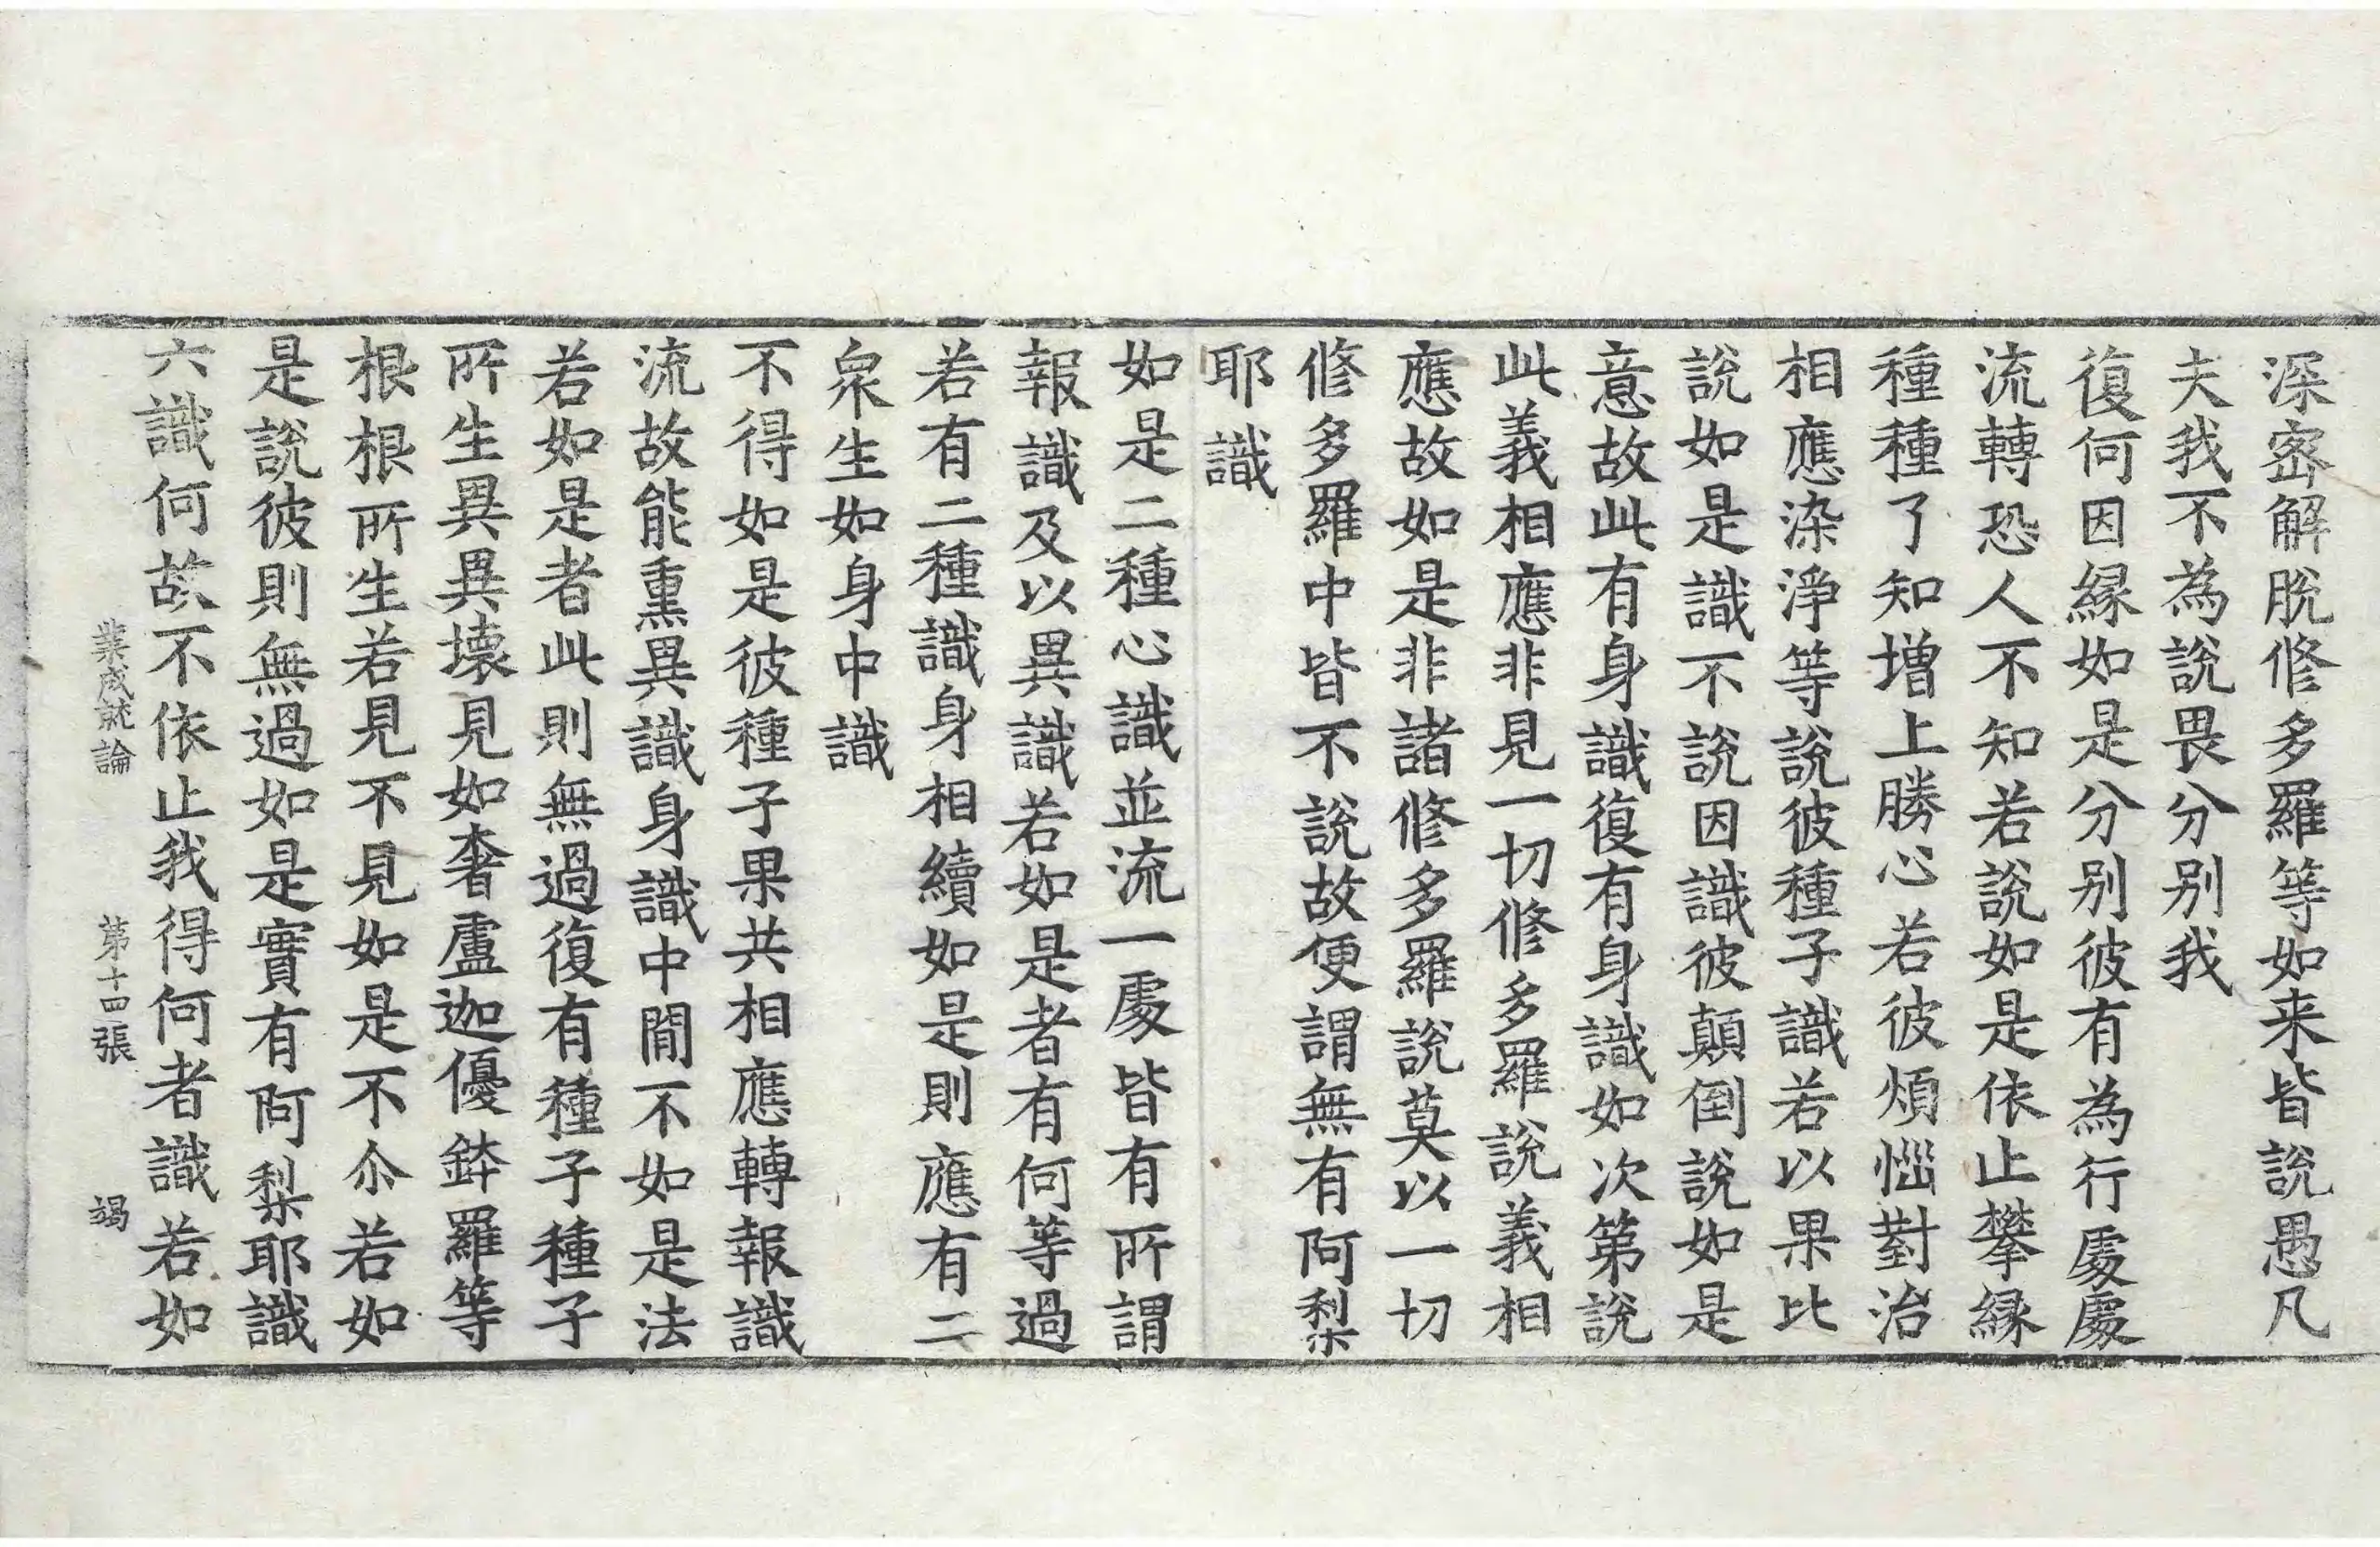 深密解脫修多羅等如来皆說愚凡
夫我不為說畏分別我
復何因緣如是分別彼有為行處處
流轉恐人不知若說如是依止攀緣
種種了知增上勝心若彼煩惱對治
相應染淨等說彼種子識若以果比
說如是識不說因識彼顛倒說如是
意故此有身識復有身識如次第說
此義相應非見一切修多羅說義相
應故如是非諸修多羅說莫以一切
修多羅中皆不說故便謂無有阿梨
耶識
如是二種心識並流一處皆有所謂
報識及以異識若如是者有何等過
若有二種識身相續如是則應有二
衆生如身中識
不得如是彼種子果共相應轉報識
流故能熏異識身識中間不如是法
若如是者此則無過復有種子種子
所生異異壞見如奢盧迦優鉢羅等
根根所生若見不見如是不尒若如
是說彼則無過如是實有阿梨耶識
六識何故不依止我得何者識若如
業成就論 第十四張 竭